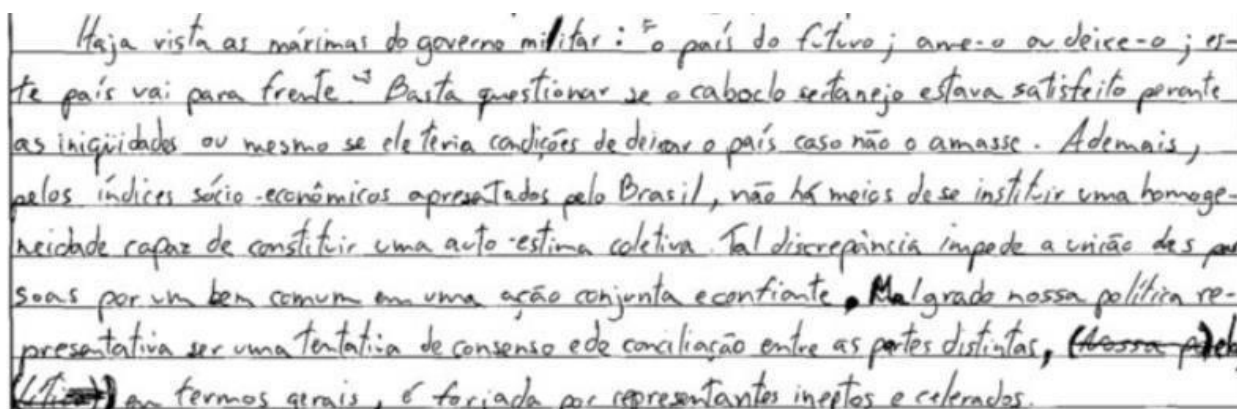 Haja vista as márimas do governo militar: "o país do futuro; ame-o ou deixe-o; es-
te país vai para frente." Basta questionar se o caboclo sertanejo estava satisfeito perante
as iniqüidades ou mesmo se ele teria condições de deixar o país caso não o amasse. Ademais,
pelos índices sócio-econômicos apresentados pelo Brasil, não há meios de se instituir uma homoge-
neidade capaz de constituir uma auto-estima coletiva. Tal discrepância impede a união das pes
soas por um bem comum em uma ação conjunta e confiante. Malgrado nossa política re-
presentativa ser uma tentativa de consenso e de conciliação entre as partes distintas, (Nossa po) ela,
(lítica) em termos gerais, é forjada por representantes ineptos e celerados.